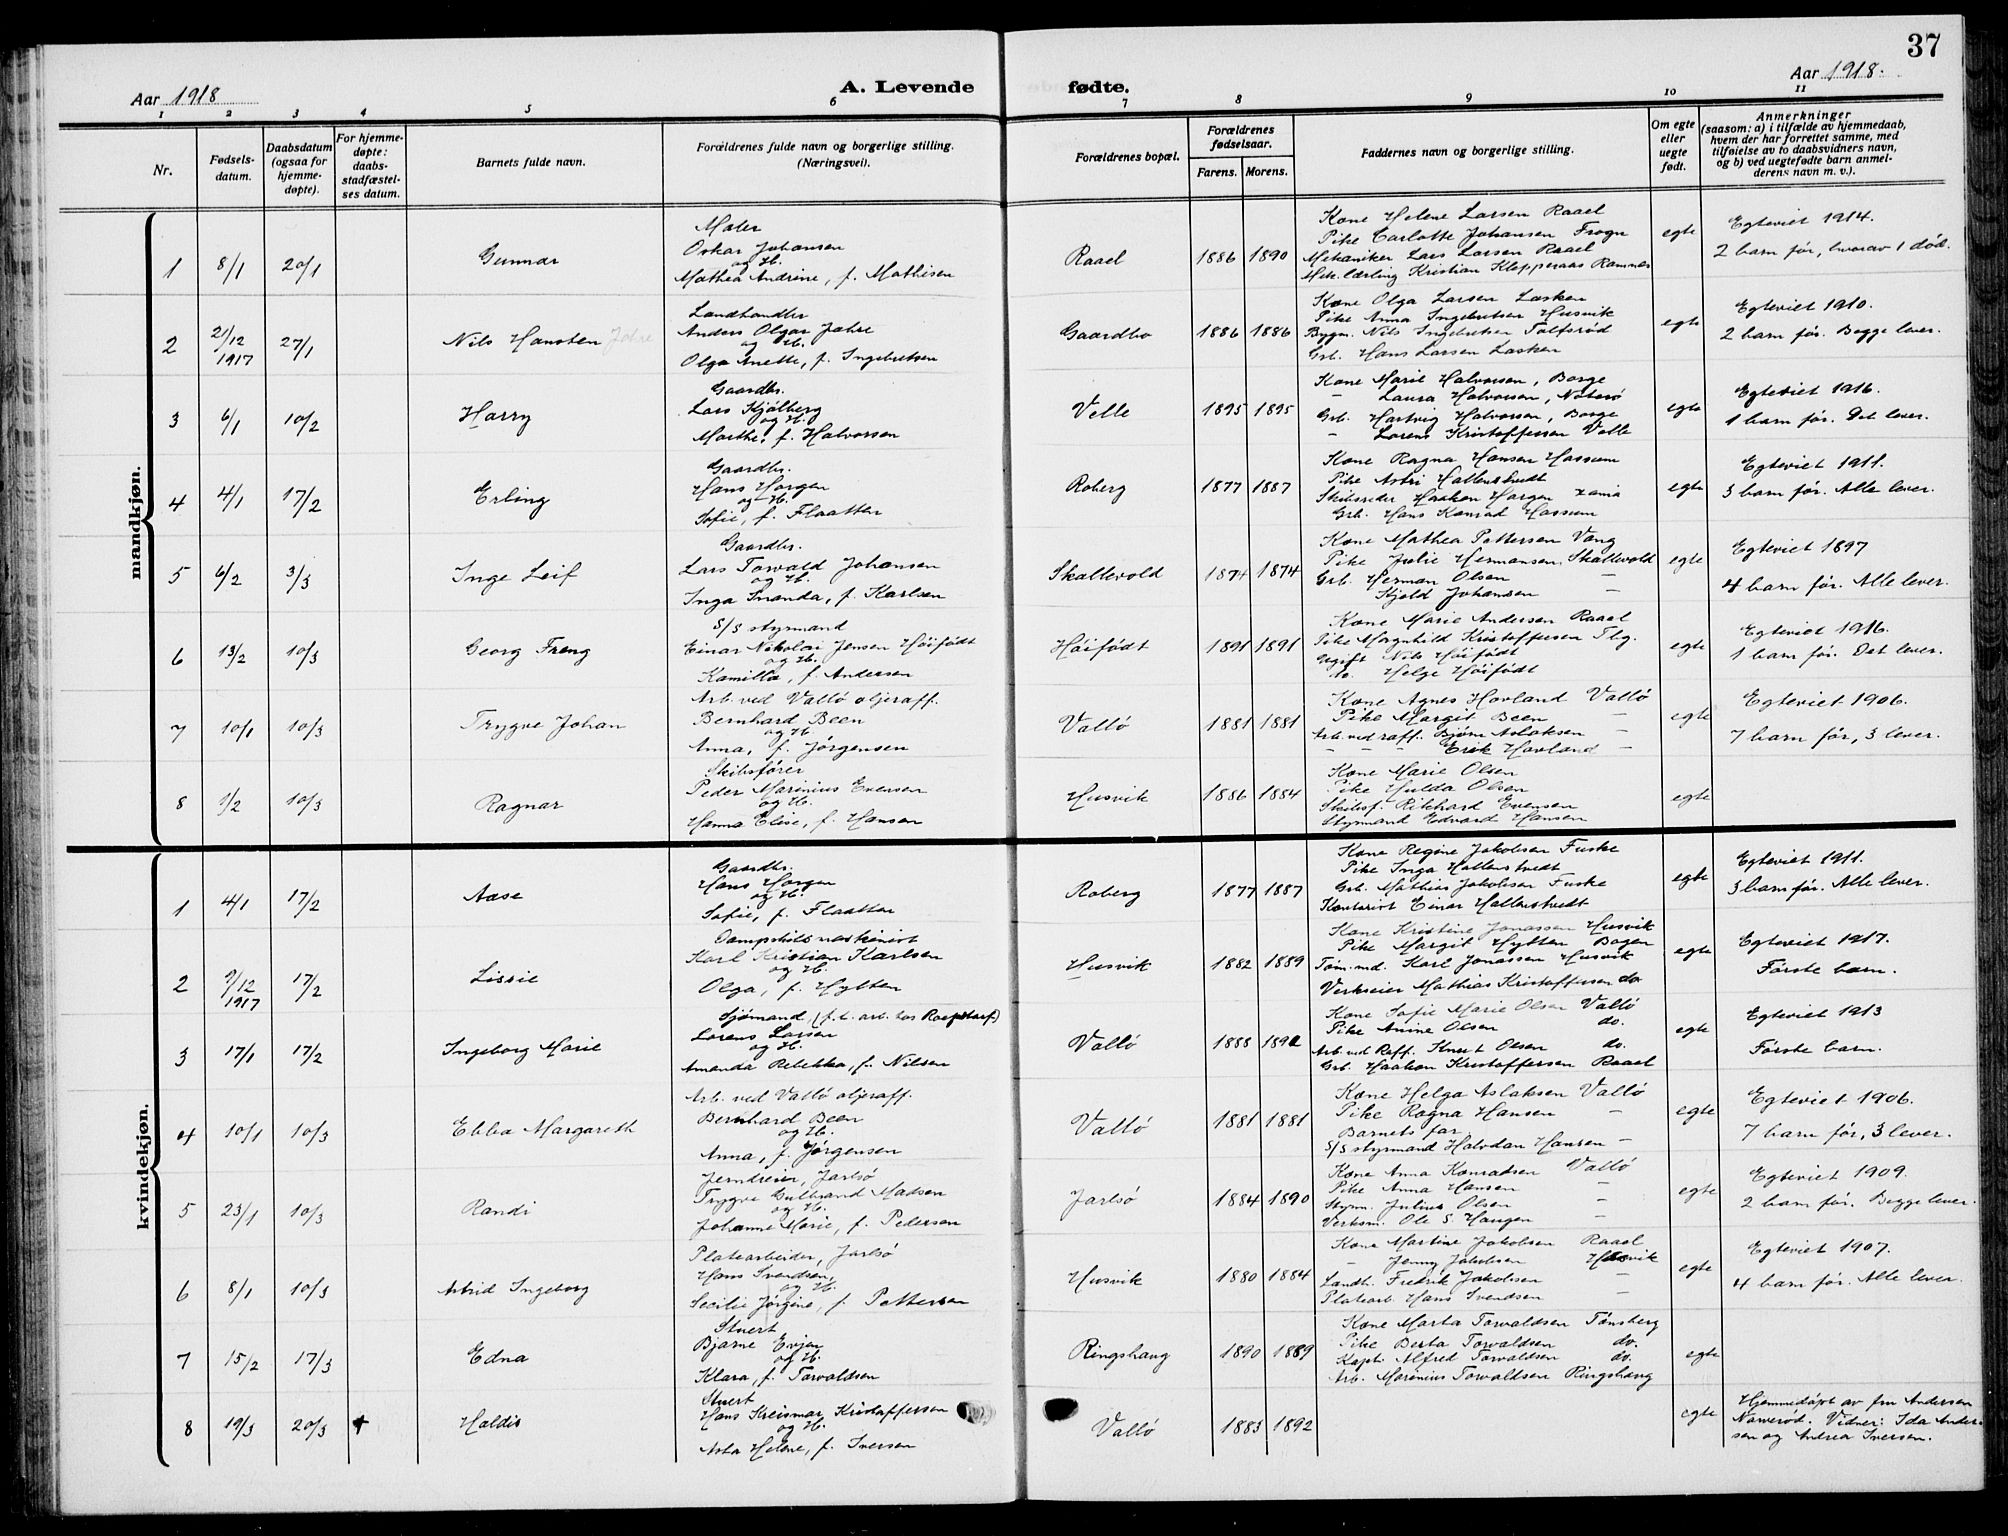 37
Aar 1918
A. Levende fødte.
Aar 1918.
1 2 3 4 5 6 7 8 9 10 11
Nr.
Fødsels-
datum.
Daabsdatum
(ogsaa for
hjemme-
døpte).
For hjemme-
døpte:
daabs-
stadfæstel-
ses datum.
Barnets fulde navn.
Forældrenes fulde navn og borgerlige stilling.
(Næringsvei).
Forældrenes bopæl.
Forældrenes
fødselsaar.
Farens. Morens.
Faddernes navn og borgerlige stilling.
Om egte
eller
uegte
født.
Anmerkninger
(saasom: a) i tilfælde av hjemmedaab,
hvem der har forrettet samme, med
tilføielse av to daabsvidners navn,
og b) ved uegtefødte barn anmel-
derens navn m. v.).
mandkjøn.
1 8/1 20/1 Gunnar
Maler
Oskar Johansen
og H.
Mathea Andrine, f. Mathisen
Raael 1886 1890
Kone Helene Larsen Raael
Pike Carlotte Johansen Frogn
Mekaniker Lars Larsen Raael
Mek. lærling Kristian Klopperaas Ramnes
egte
Egteviet 1914.
2 barn før, hvorav 1 død.
2 21/12 1917 27/1 Nils Hansten Jahre
Landhandler
Anders Olgar Jahre
og H.
Olga Anette, f. Ingebretsen
Gaardbo 1886 1886
Kone Olga Larsen Lasken
Pike Anna Ingebretsen Husvik
Bygm. Nils Ingebretsen Tolfsrød
Grb. Hans Larsen Lasken
egte
Egteviet 1910.
2 barn før. Begge lever.
3 6/1 10/2 Harry
Gaardbr.
Lars Kjølberg
og H.
Marthe, f. Halvorsen
Velle 1895 1895
Kone Marie Halvorsen, Borge
- Laura Halvorsen, Nøterø
Grb. Hartvig Halvorsen, Borge
- Lorens Kristoffersen Velle
egte
Egteviet 1916.
1 barn før. Det lever.
4 4/1 17/2 Erling
Gaardbr.
Hans Horgen
og H.
Sofie, f. Flaatten
Roberg 1877 1887
Kone Ragna Hansen Hassum
Pike Astri Hallenstvedt
Skibsreder Haaken Horgen
Grb. Hans Konrad Hassum
egte
Egteviet 1911.
3 barn før. Alle lever.
5 6/2 3/3 Inge Leif
Gaardbr.
Lars Torvald Johansen
og H.
Inga Smanda, f. Karlsen
Skallevold 1874 1874
Kone Mathea Pettersen Vang
Pike Julie Hermansen Skallevold
Grb. Herman Olsen -
Kjeld Johansen -
egte
Egteviet 1897
4 barn før. Alle lever.
6 13/2 10/3 Georg Freng
S/S styrmand
Einar Nikolai Jensen Høifødt
og H.
Kamilla, f. Andersen
Høifødt 1891 1891
Kone Marie Andersen Raael
Pike Margnhild Kristoffersen Tbg.
Ugift Nils Høifødt
do. Helge Høifødt
egte
Egteviet 1916.
1 barn før. Det lever.
7 10/1 10/3 Trygve Johan
Arb. ved Vallø oljeraff.
Bernhard Been
og H.
Anna, f. Jørgensen
Vallø 1881 1881
Kone Agnes Hovland Vallø
Pike Margit Been -
Arb. ved raff. Bjørn Aslaksen -
- - Erik Hovland -
egte
Egteviet 1906.
7 barn før, 3 lever.
8 1/2 10/3 Ragnar
Skibsfører
Peder Marinius Evensen
og H.
Hanna Elise, f. Hansen
Husvik 1886 1884
Kone Marie Olsen
Pike Hulda Olsen
Skibsf. Rikhard Evensen
Styrmand Edvard Hansen
egte
kvindekjøn.
1 4/1 17/2 Aase
Gaardbr.
Hans Horgen
og H.
Sofie, f. Flaatten
Roberg 1877 1887
Kone Regine Jakobsen Fuske
Pike Inga Hallenstvedt
Grb. Mathias Jakobsen Fuske
Kontorist Einar Hallenstvedt
egte
Egteviet 1911.
3 barn før. Alle lever.
2 9/12 1917 17/2 Lissie
Dampskibsmaskinist
Karl Kristian Karlsen
og H.
Olga, f. Hylten
Husvik 1882 1889
Kone Kristine Jonassen Husvik
Pike Margit Hylten Bogen
Tøm.md. Karl Jonassen Husvik
Verkseier Mathias Kristoffersen do.
egte
Egteviet 1917.
Første barn.
3 17/1 17/2 Ingeborg Marie
Sjømand, (f.t. arb. hos Roepstorf)
Lorens Larsen
og H.
Amanda Rebekka, f. Nilsen
Vallø 1888 1892
Kone Sofie Marie Olsen Vallø
Pike Anine Olsen do.
Arb. ved Raff. Knut Olsen do.
Grb. Haakon Kristoffersen Raael
egte
Egteviet 1913
Første barn.
4 10/1 10/3 Ebba Margareth
Arb. ved Vallø oljeraff.
Bernhard Been
og H.
Anna, f. Jørgensen
Vallø 1881 1881
Kone Helga Aslaksen Vallø
Pike Ragna Hansen -
Barnets far
S/S styrmand Halvdan Hansen -
egte
Egteviet 1906.
7 barn før, 3 lever.
5 23/1 10/3 Randi
Jerndreier, Jarlsø
Trygve Gulbrand Madsen
og H.
Johanne Marie, f. Pedersen
Jarlsø 1884 1890
Kone Anna Konradsen Vallø
Pike Anna Hansen -
Styrm. Julius Olsen -
Verksm. Ole S. Haugen -
egte
Egteviet 1909.
2 barn før. Begge lever.
6 8/1 10/3 Astrid Ingeborg
Platearbeider, Jarlsø
Hans Svendsen,
og H.
Secilie Jørgine, f. Pettersen
Husvik 1880 1884
Kone Martine Jakobsen Raael
- Jenny Jakobsen Husvik
Landh. Fredrik Jakobsen -
Platearb. Hans Svendsen -
egte
Egteviet 1907.
4 barn før. Alle lever.
7 15/2 17/3 Edna
Stuert
Bjarne Evjen
og H.
Klara, f. Torvaldsen
Ringshaug 1890 1889
Kone Marta Torvaldsen Tønsberg
Pike Berta Torvaldsen do.
Kapt. Alfred Torvaldsen do.
Arb. Marinius Torvaldsen Ringshaug
egte
8 19/3 20/3 + Haldis
Stuert
Hans Kreismar Kristoffersen
og H.
Asta Helene, f. Iversen
Vallø 1883 1892
egte
Hjemmedøpt av fru Andersen
Narverød. Vidner: Ida Ander-
sen og Andrea Iversen.